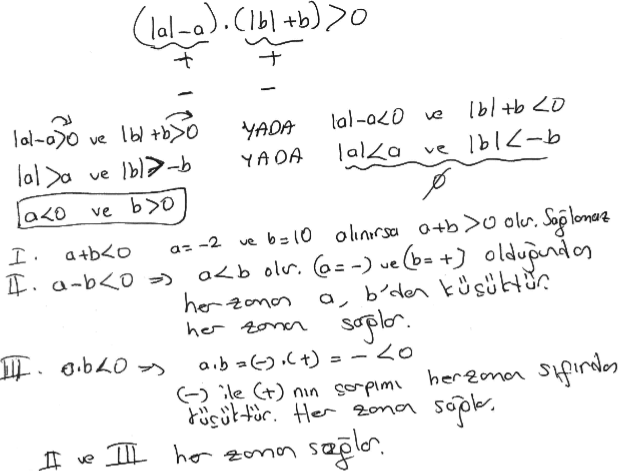 (|a|-a).(|b|+b)>0
+ +
- -
|a|-a>0 ve |b|+b>0 YADA |a|-a<0 ve |b|+b<0
|a|>a ve |b|>-b YADA |a|<a ve |b|<-b
a<0 ve b>0 ∅
I. a+b<0 a=-2 ve b=10 alınırsa a+b>0 olur. Sağlamaz
II. a-b<0 => a<b olur. (a=-) ve (b=+) olduğundan
her zaman a, b'den küçüktür.
her zaman sağlar.
III. a.b<0 => a.b=(-).(+) = - <0
(-) ile (+) nın çarpımı her zaman sıfırdan
küçüktür. Her zaman sağlar.
II ve III her zaman sağlar.